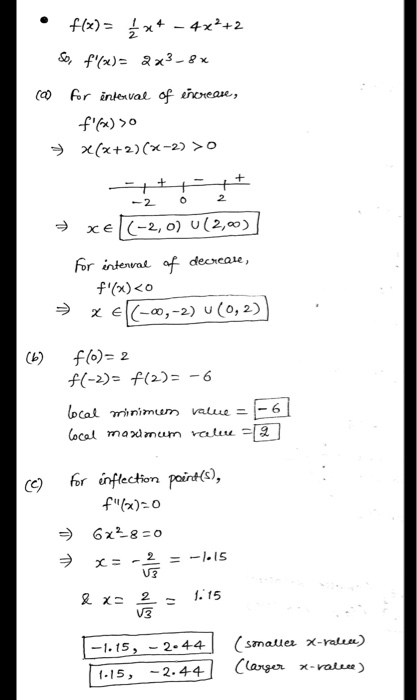 • f(x) = 1/2 x⁴ - 4x² + 2
So, f'(x) = 2x³ - 8x
(a) For interval of increase,
f'(x) > 0
⇒ x(x+2)(x-2) > 0
- + - +
-2 0 2
⇒ x ∈ (-2, 0) ∪ (2, ∞)
For interval of decrease,
f'(x) < 0
⇒ x ∈ (-∞, -2) ∪ (0, 2)
(b) f(0) = 2
f(-2) = f(2) = -6
local minimum value = -6
local maximum value = 2
(c) For inflection point(s),
f''(x) = 0
⇒ 6x² - 8 = 0
⇒ x = -2/√3 = -1.15
& x = 2/√3 = 1.15
-1.15, -2.44 (smaller x-value)
1.15, -2.44 (larger x-value)